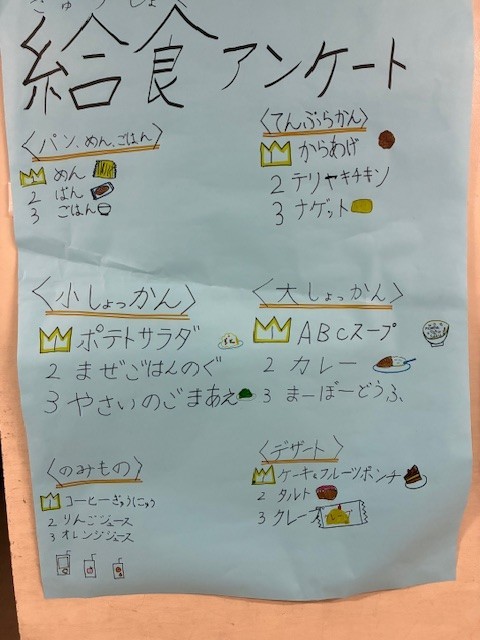 きゅうしょく
給食アンケート
〈パン、めん、ごはん〉
1 めん
2 ぱん
3 ごはん
〈てんぷらかん〉
1 からあげ
2 テリヤキチキン
3 ナゲット
〈小しょっかん〉
1 ポテトサラダ
2 まぜごはんのぐ
3 やさいのごまあえ
〈大しょっかん〉
1 ABCスープ
2 カレー
3 まーぼーどうふ
〈のみもの〉
1 コーヒーぎゅうにゅう
2 りんごジュース
3 オレンジジュース
〈デザート〉
1 ケーキとフルーツポンチ
2 タルト
3 クレープ